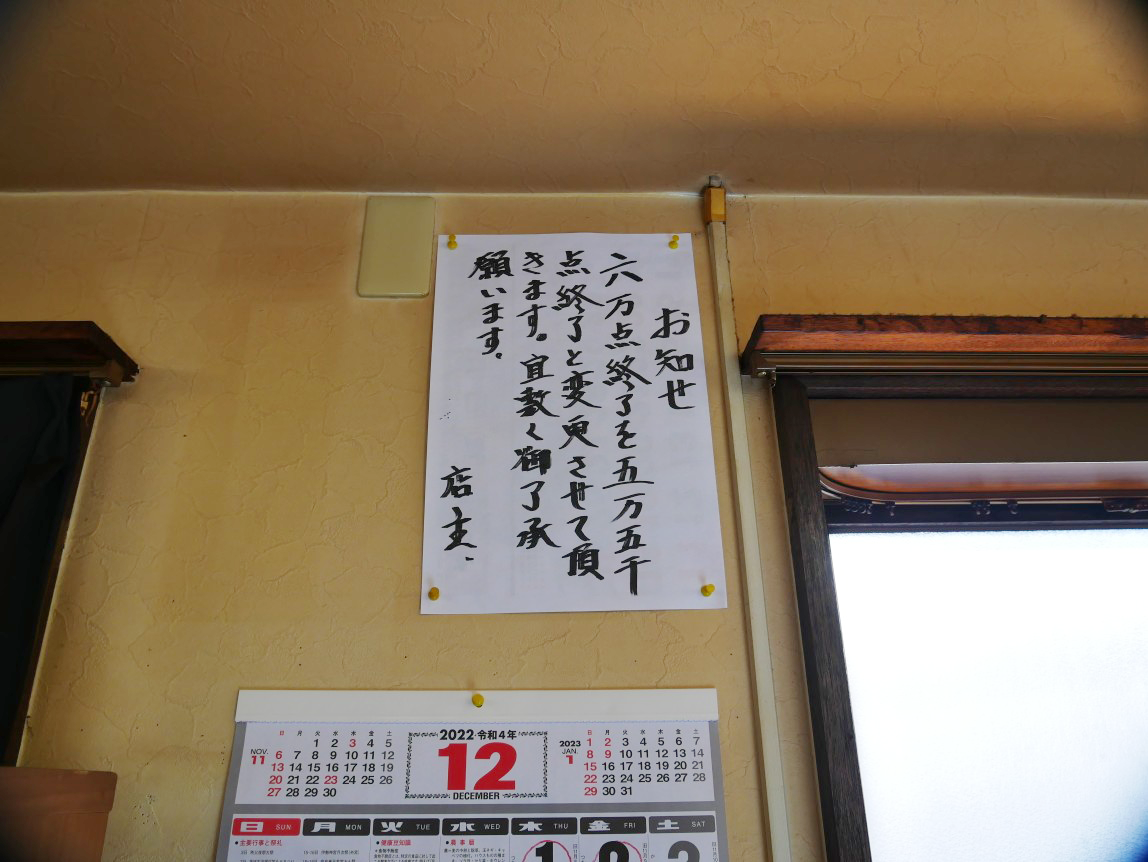 お知せ
六万点終了を五万五千
点終了と変更させて頂
きます。宜敷く御了承
願います。
店主、
2022・令和4年
12
DECEMBER
NOV.
11
日 月 火 水 木 金 土
1 2 3 4 5
6 7 8 9 10 11 12
13 14 15 16 17 18 19
20 21 22 23 24 25 26
27 28 29 30
2023
JAN.
1
日 月 火 水 木 金 土
1 2 3 4 5 6 7
8 9 10 11 12 13 14
15 16 17 18 19 20 21
22 23 24 25 26 27 28
29 30 31
日 SUN 月 MON 火 TUE 水 WED 木 THU 金 FRI 土 SAT
●主要行事と祭礼
●健康豆知識
1 2 3